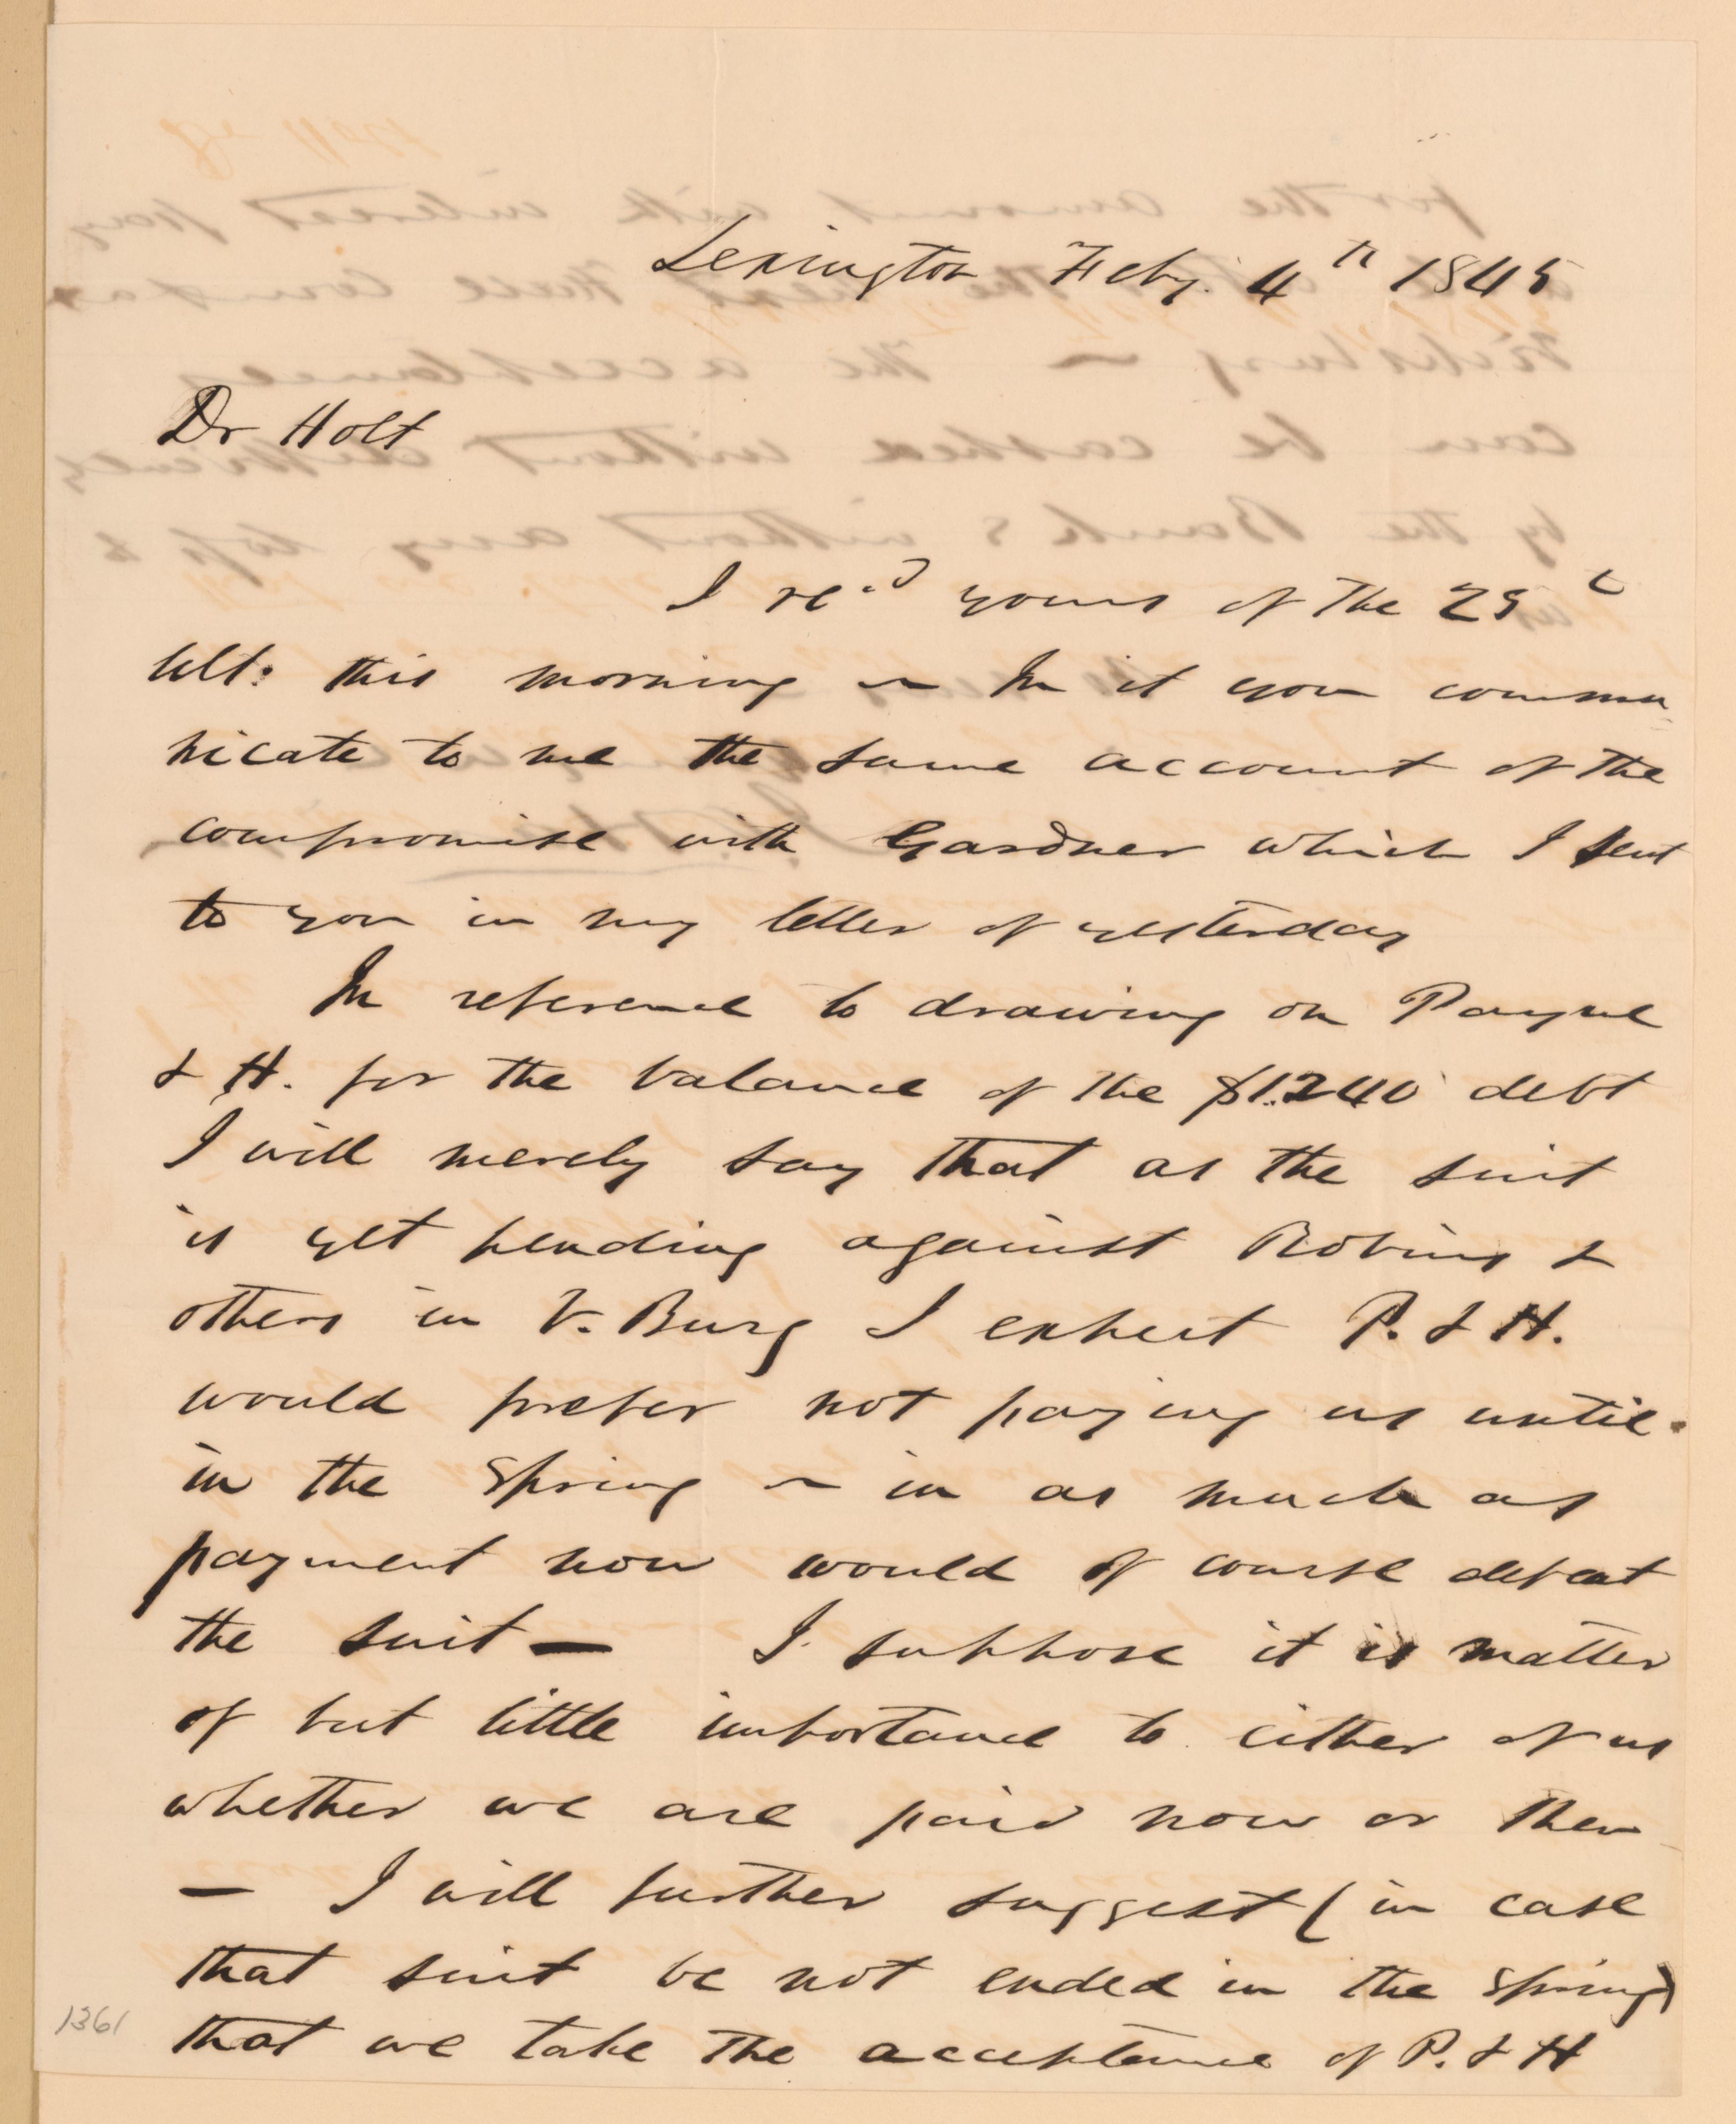 Lexington Feby. 4th 1845
Dr Holt
I recd yours of the 25t
ult: this morning ~ In it you commu
nicate to me the same account of the
compromise with Gardner which I sent
to you in my letter of yesterday
In reference to drawing on Payne
& H. for the balance of the $1.240 debt
I will merely say that as the suit
is yet pending against Robins &
others in V. Burg I expect P. & H.
would prefer not paying us until
in the Spring ~ in as much as
payment now would of course defeat
the suit — I suppose it is matter
of but little importance to either of us
whether we are paid now or then
— I will further suggest (in case
that suit be not ended in the Spring)
that we take the acceptance of P. & H
1361